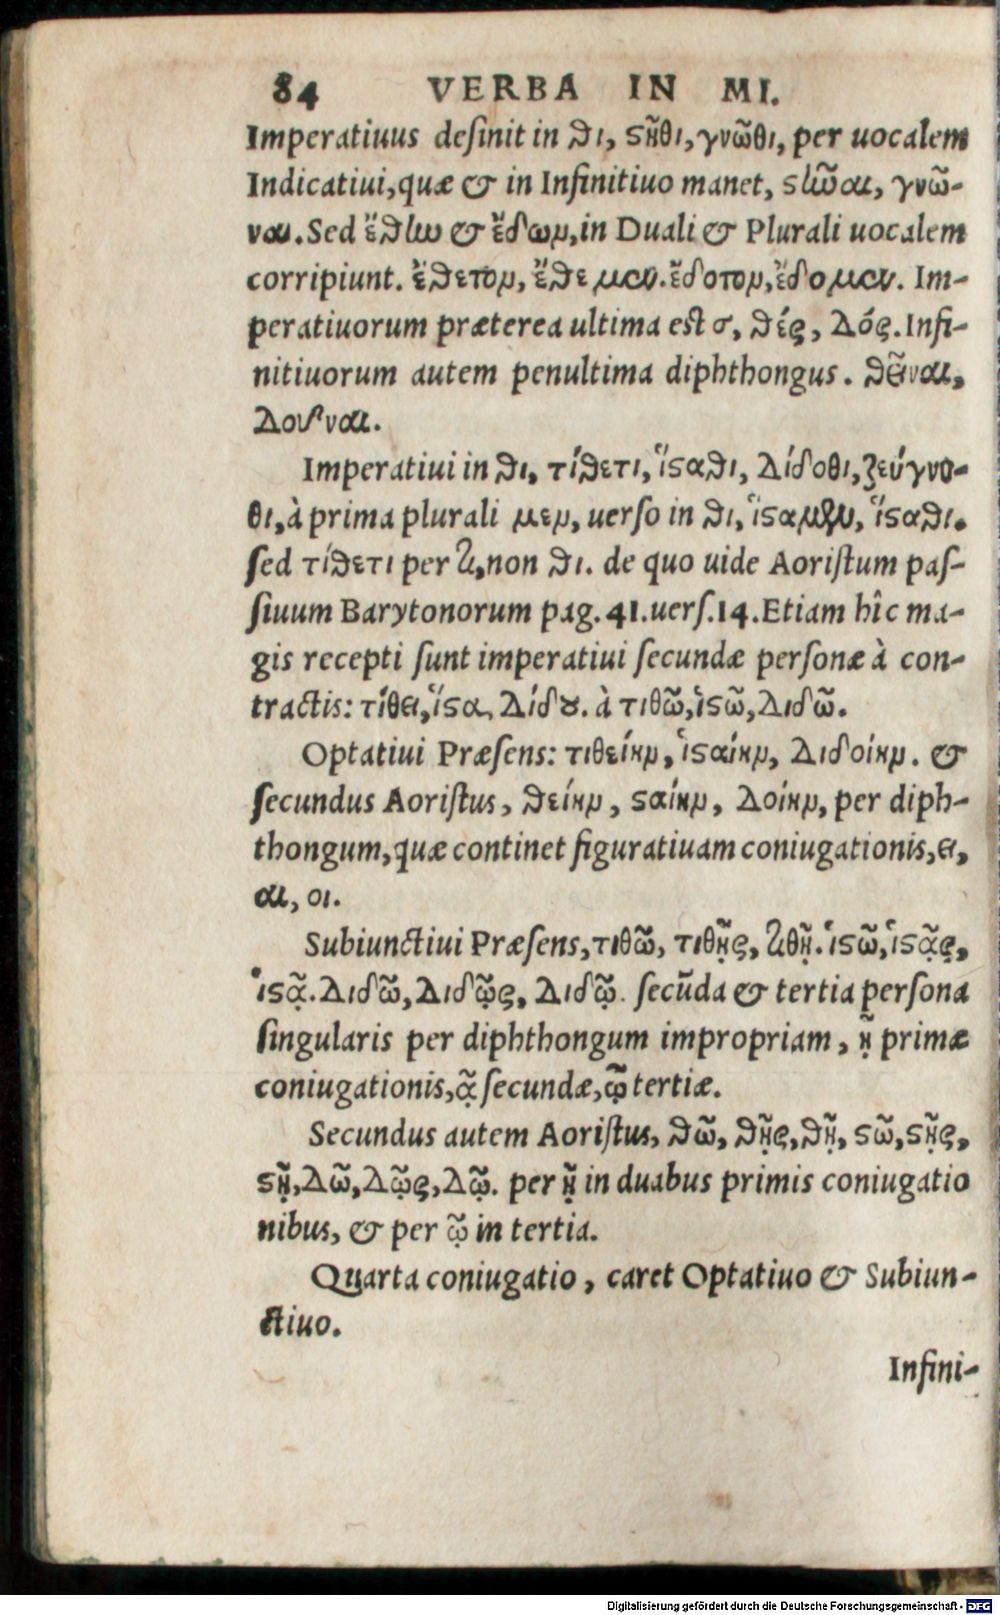 84 VERBA IN MI.
Imperatiuus desinit in θι, ϛῆθι, γνῶθι, per uocalem
Indicatiui, quæ & in Infinitiuo manet, ϛῆναι, γνῶ-
ναι. Sed ἔθην & ἔδων, in Duali & Plurali uocalem
corripiunt. ἔθετον, ἔθεμεν. ἔδοτον, ἔδομεν. Im-
peratiuorum præterea ultima est σ, θές, δός. Infi-
nitiuorum autem penultima diphthongus. θεῖναι,
δοῦναι.
Imperatiui in θι, τίθετι, ἵϛαθι, δίδοθι, ζεύγνυ-
θι, à prima plurali μεν, uerso in θι, ἵϛαμεν, ἵϛαθι.
sed τίθετι per τι, non θι. de quo uide Aoristum pas-
siuum Barytonorum pag. 41. uers. 14. Etiam hîc ma-
gis recepti sunt imperatiui secundæ personæ à con-
tractis: τίθει, ἵϛα, δίδου. à τιθῶ, ἱϛῶ, διδῶ.
Optatiui Præsens: τιθείην, ἱϛαίην, διδοίην. &
secundus Aoristus, θείην, ϛαίην, δοίην, per diph-
thongum, quæ continet figuratiuam coniugationis, ει,
αι, οι.
Subiunctiui Præsens, τιθῶ, τιθῇς, τιθῇ. ἱϛῶ, ἱϛᾷς,
ἱϛᾷ. διδῶ, διδῷς, διδῷ. secūda & tertia persona
singularis per diphthongum impropriam, ῇ primæ
coniugationis, ᾷ secundæ, ῷ tertiæ.
Secundus autem Aoristus, θῶ, θῇς, θῇ, ϛῶ, ϛῇς,
ϛῇ, δῶ, δῷς, δῷ. per ῇ in duabus primis coniugatio
nibus, & per ῷ in tertia.
Quarta coniugatio, caret Optatiuo & Subiun-
ctiuo.
Infini-
Digitalisierung gefördert durch die Deutsche Forschungsgemeinschaft - DFG